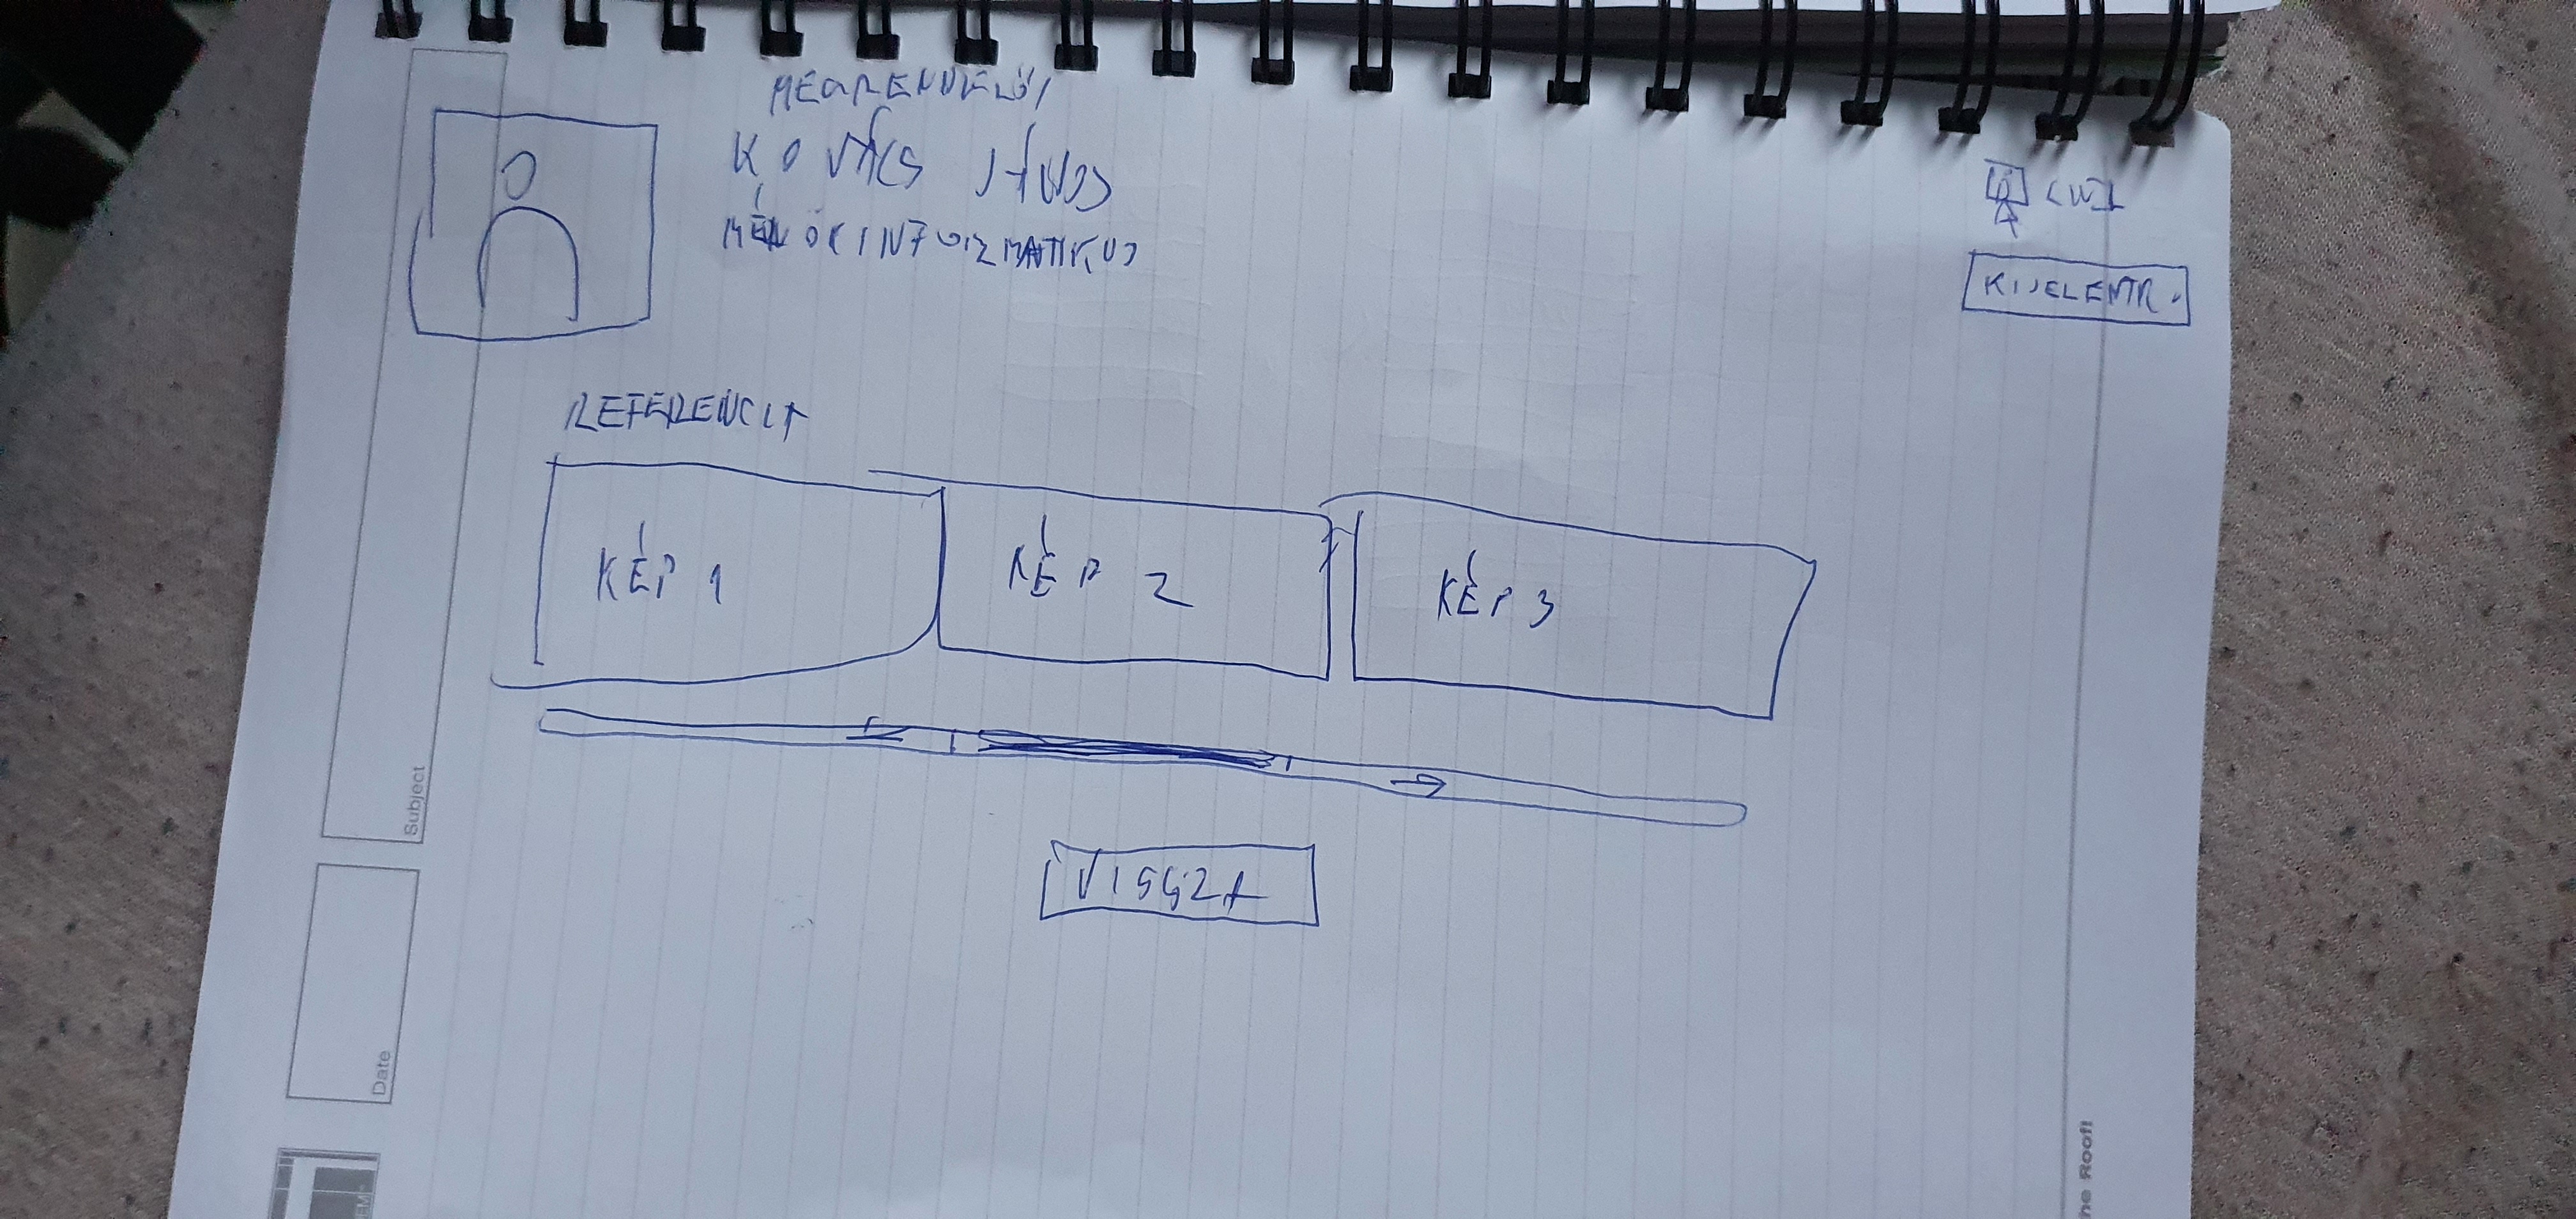 MEGRENDELŐI
KOVÁCS JÁNOS
MÉRNÖKINFORMATIKUS
KIJELENTK.
REFERENCIA
KÉP 1
KÉP 2
KÉP 3
VISSZA
Subject
Date
he Roof!